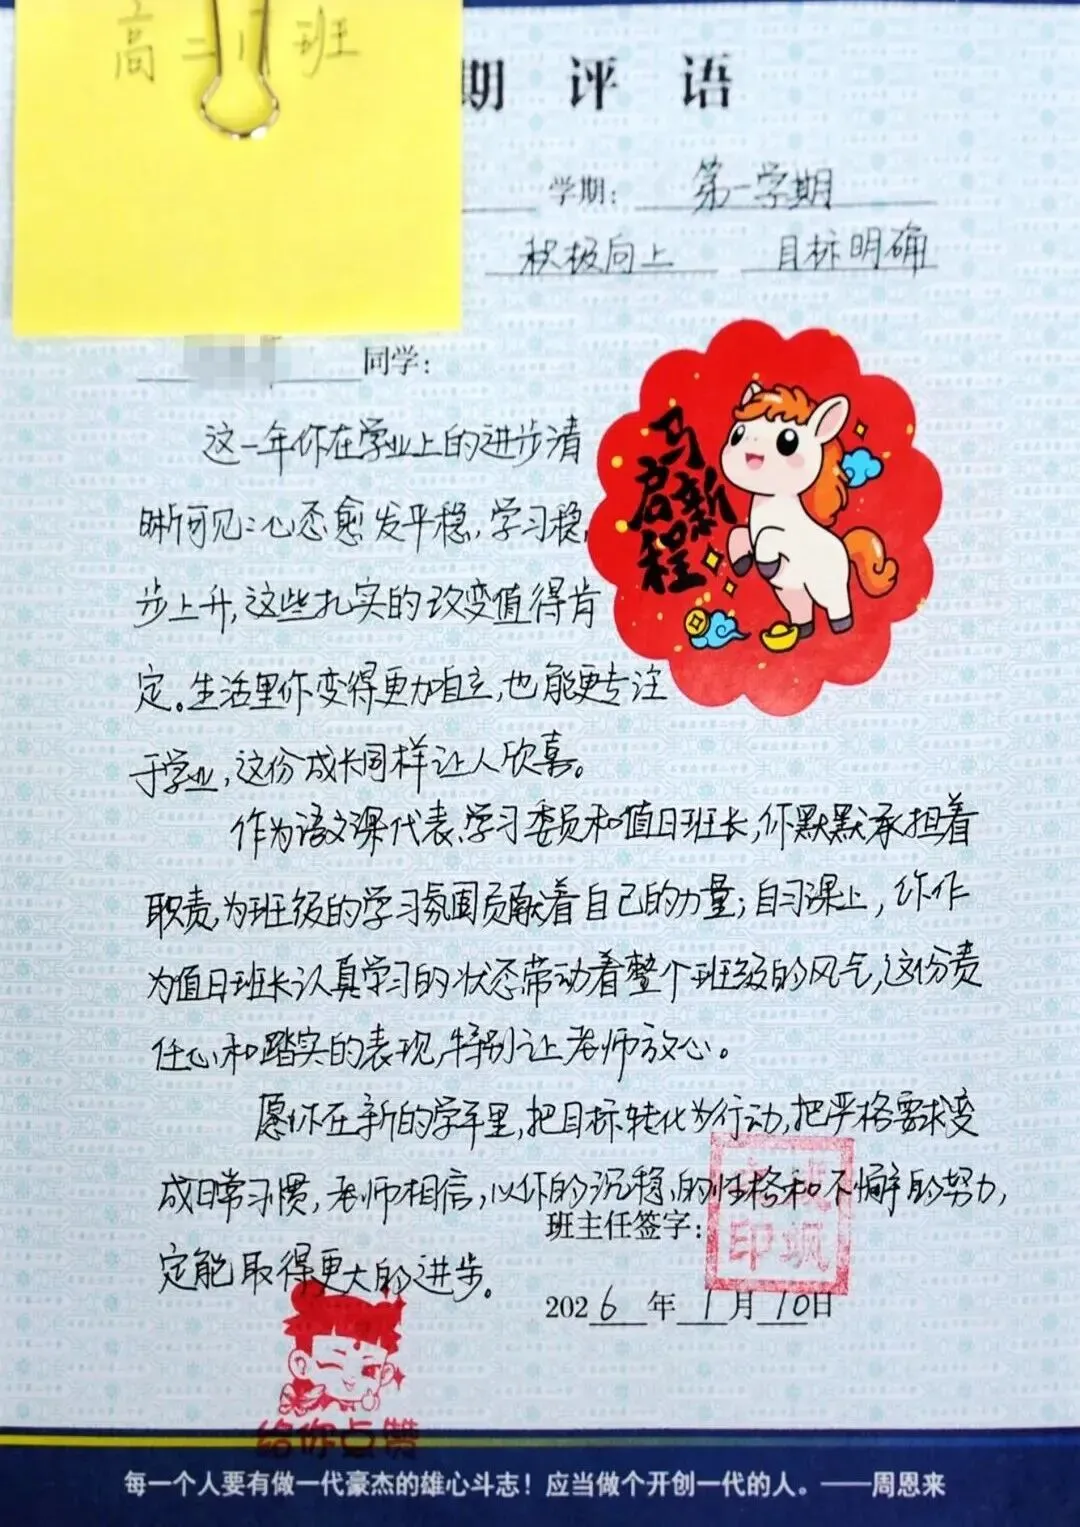 高二 班
期 评 语
学期: 第一学期
积极向上 目标明确
同学:
马
启新
程
这一年你在学业上的进步清
晰可见:心态愈发平稳,学习稳
步上升,这些扎实的改变值得肯
定。生活里你变得更加自立,也能更专注
于学业,这份成长同样让人欣喜。
作为语文课代表、学习委员和值日班长,你默默承担着
职责,为班级的学习氛围贡献着自己的力量;自习课上,你作
为值日班长认真学习的状态带动着整个班级的风气,这份责
任心和踏实的表现,特别让老师放心。
愿你在新的学年里,把目标转化为行动,把严格要求变
成日常习惯,老师相信,以你的沉稳的性格和不懈的努力,
定能取得更大的进步。
班主任签字:
印
2026年1月10日
给你点赞
每一个人要有做一代豪杰的雄心斗志!应当做个开创一代的人。——周恩来